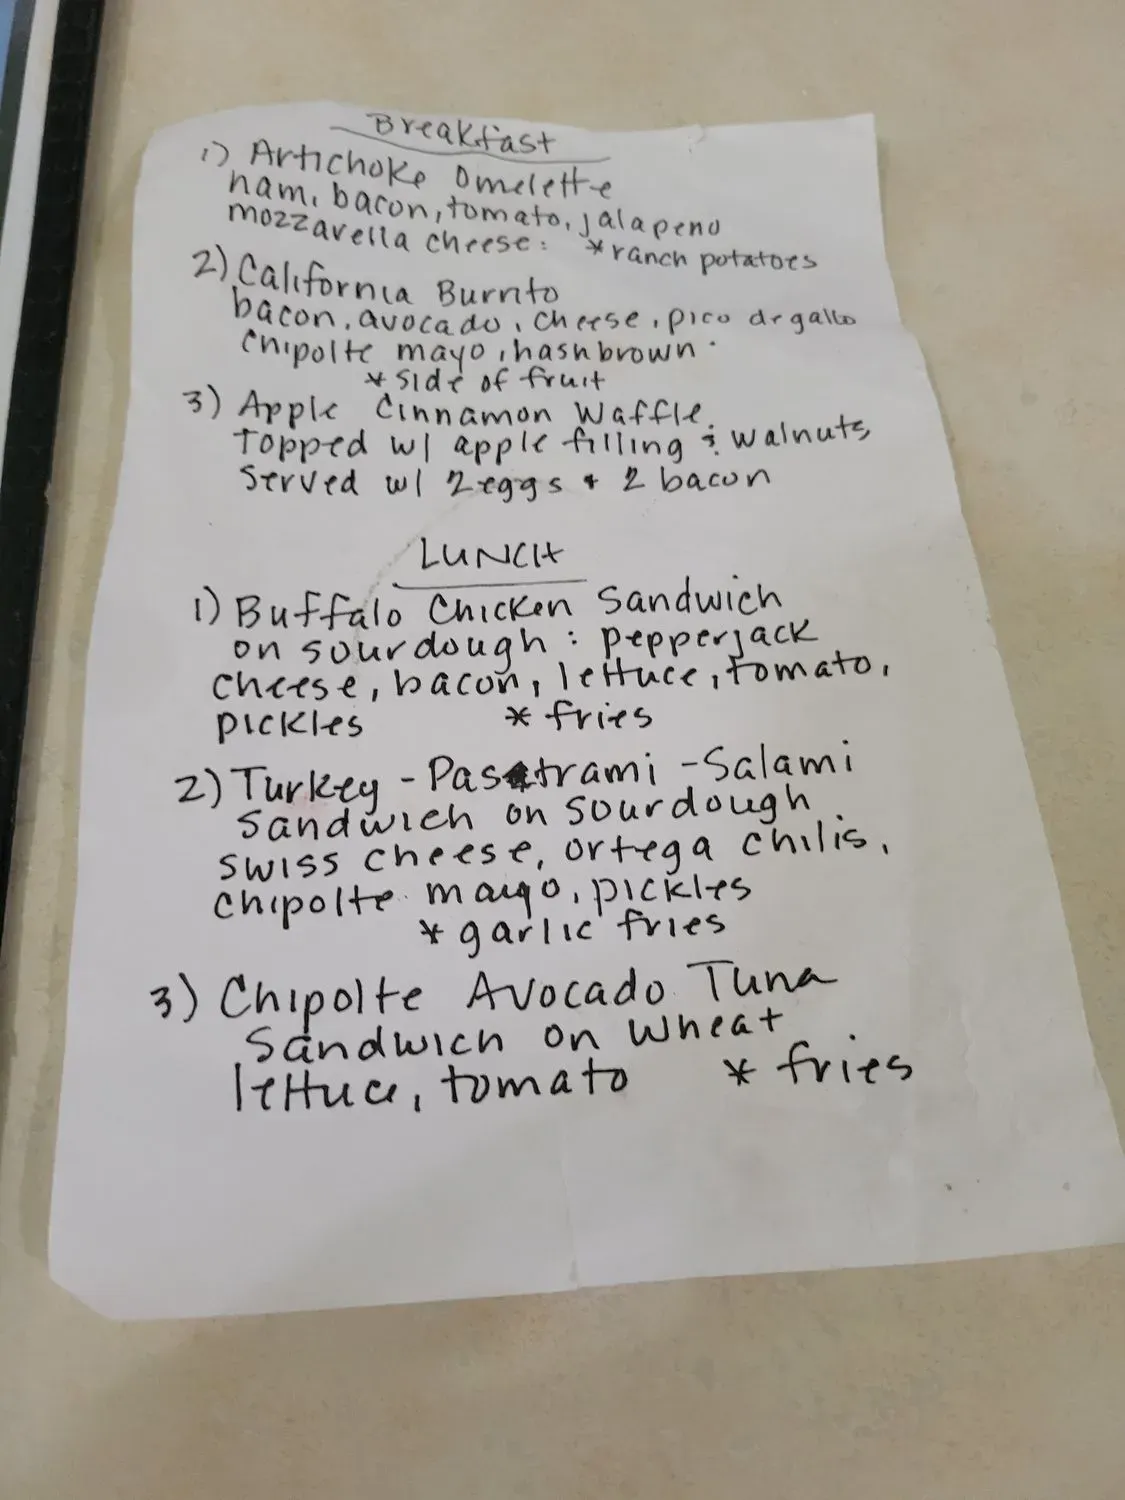 Breakfast
1) Artichoke Omelette
ham, bacon, tomato, jalapeno
mozzarella cheese: *ranch potatoes
2) California Burrito
bacon, avocado, cheese, pico de gallo
chipolte mayo, hashbrown.
* side of fruit
3) Apple Cinnamon Waffle.
Topped w/ apple filling & walnuts
Served w/ 2 eggs + 2 bacon
LUNCH
1) Buffalo Chicken Sandwich
on sourdough: pepperjack
cheese, bacon, lettuce, tomato,
pickles * fries
2) Turkey - Pastrami - Salami
Sandwich on sourdough
swiss cheese, ortega chilis,
chipolte mayo, pickles
* garlic fries
3) Chipolte Avocado Tuna
Sandwich on wheat
lettuce, tomato * fries